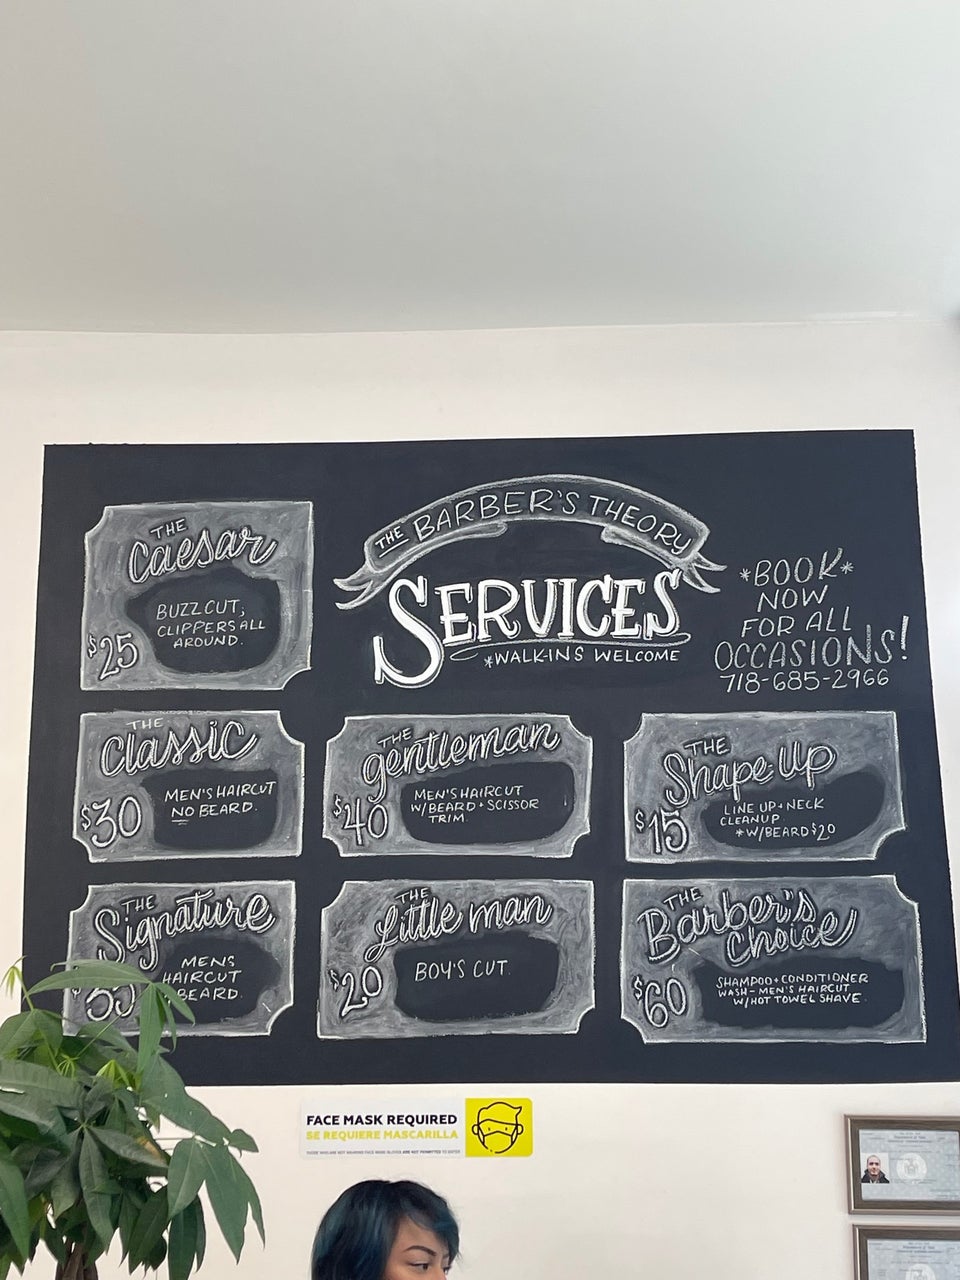 THE BARBER'S THEORY
SERVICES
*WALK-INS WELCOME
*BOOK*
NOW
FOR ALL
OCCASIONS!
718-685-2966
THE
Caesar
BUZZ CUT;
CLIPPERS ALL
AROUND.
$25
THE
Classic
MEN'S HAIRCUT
NO BEARD.
$30
THE
gentleman
MEN'S HAIRCUT
W/BEARD + SCISSOR
TRIM.
$40
THE
Shape Up
LINE UP + NECK
CLEANUP
*W/BEARD $20
$15
THE
Signature
MENS
HAIRCUT
BEARD.
THE
Little man
BOY'S CUT.
$20
THE
Barber's
Choice
SHAMPOO + CONDITIONER
WASH - MEN'S HAIRCUT
W/HOT TOWEL SHAVE.
$60
FACE MASK REQUIRED
SE REQUIERE MASCARILLA